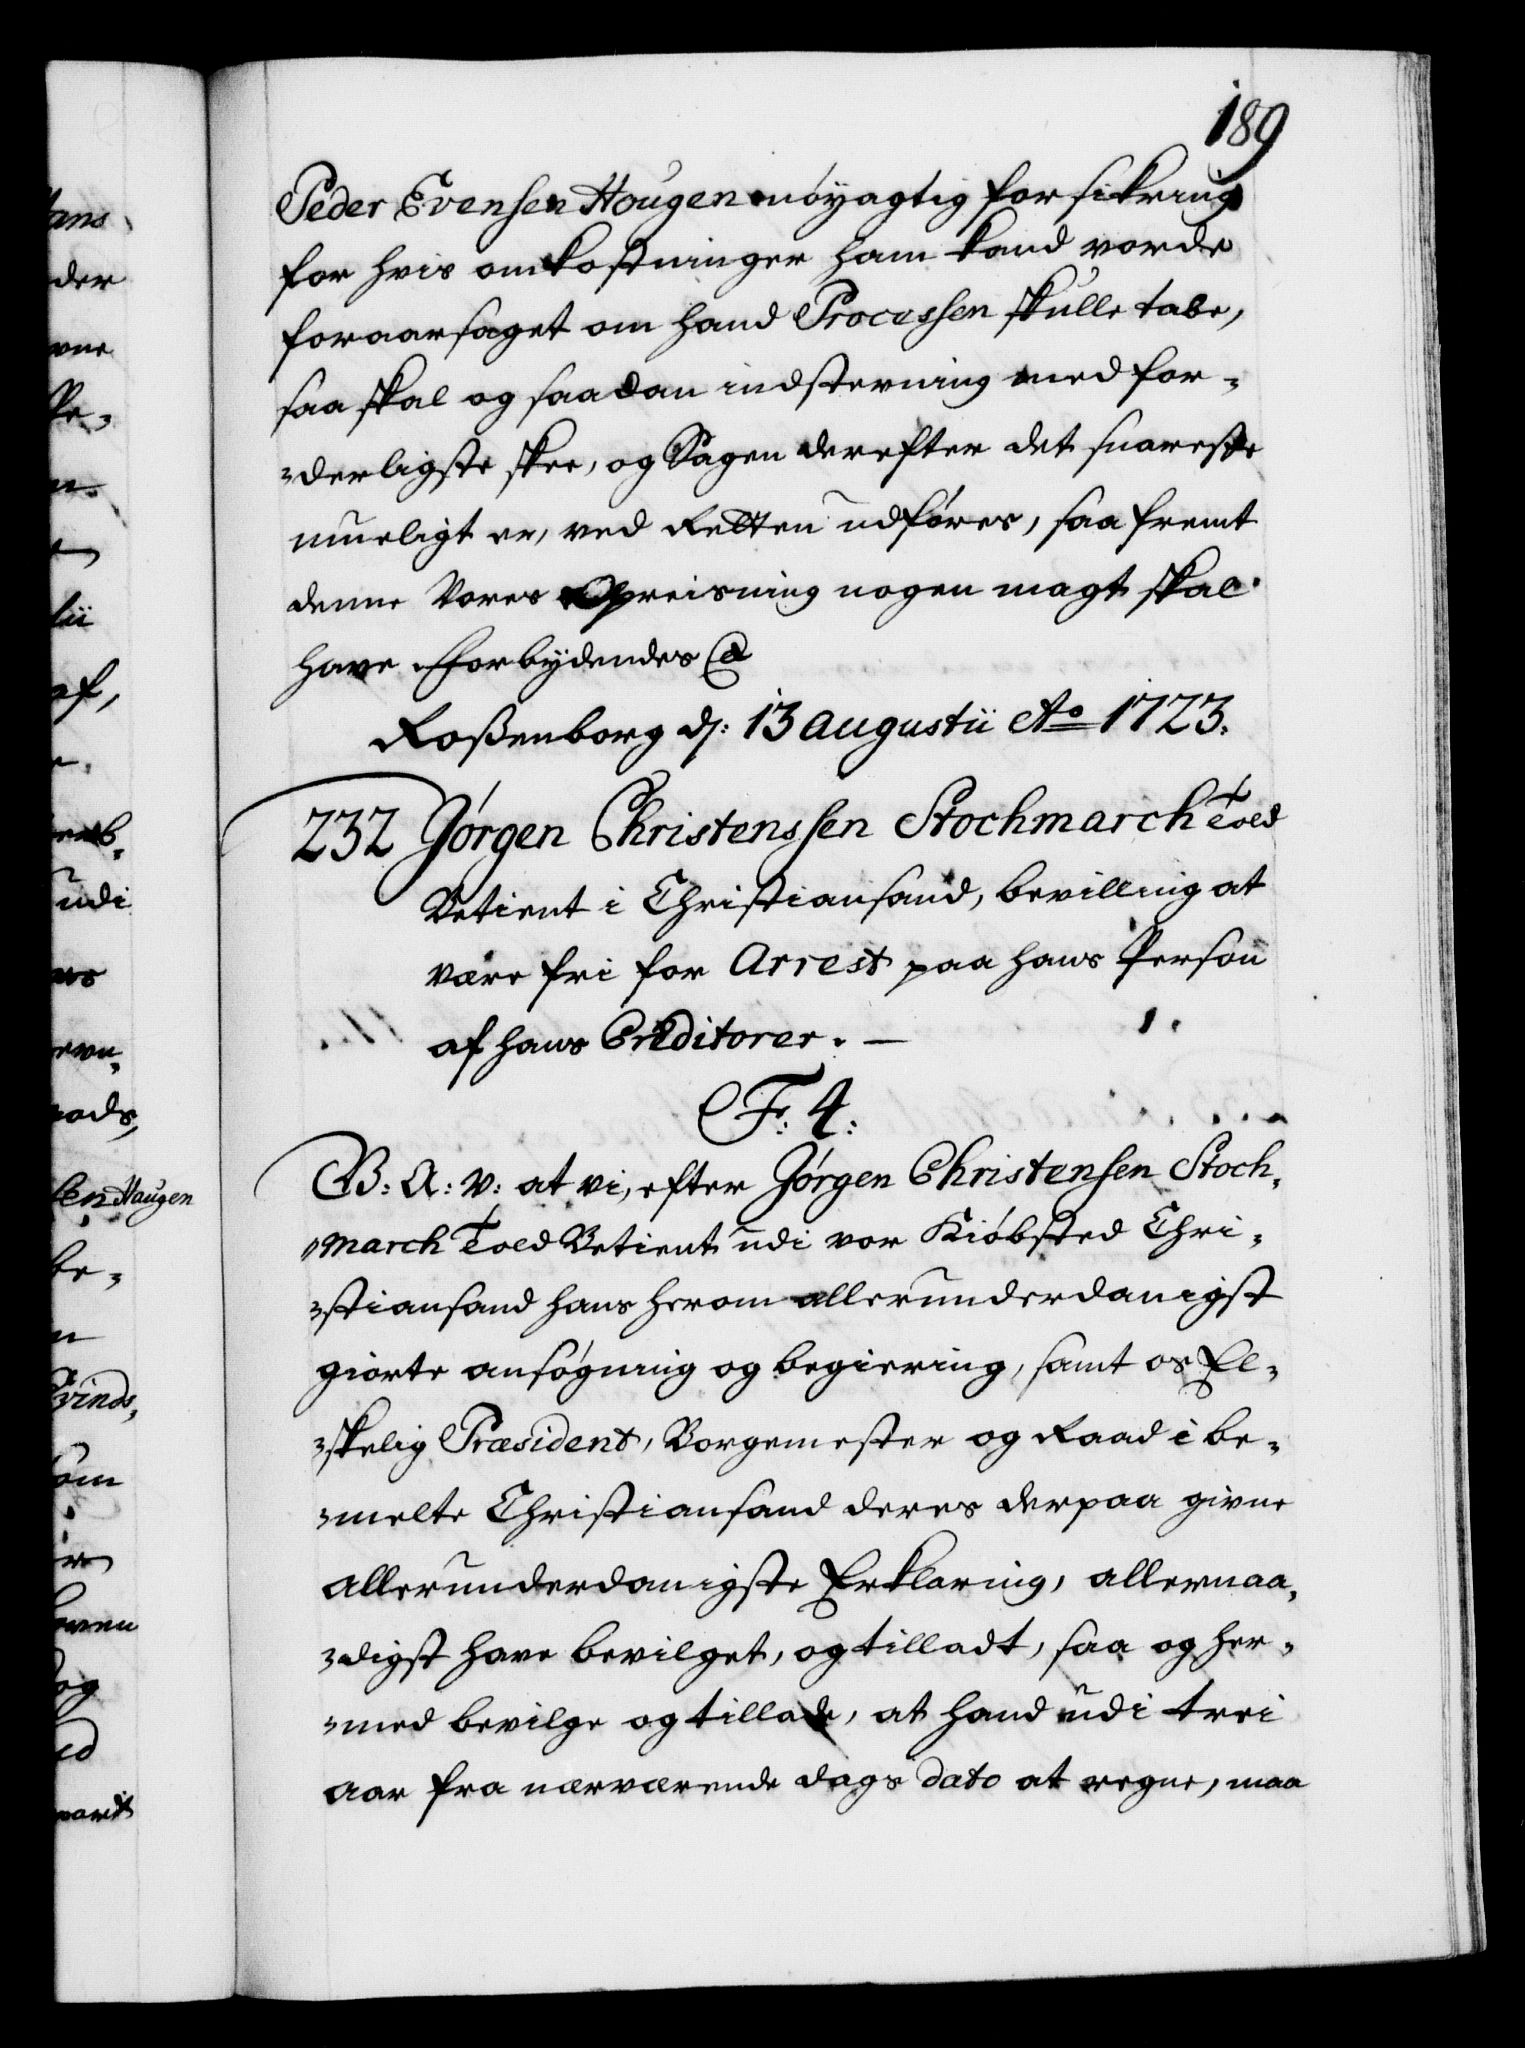 189
Peder Evensen Hougen nöyagtig forsikring
for hvis omkostninger ham kand vorde
foraarsaget om hand Processen skulle tabe,
saa skal og saadan indstevning med for-
-derligste skee, og Sagen derefter det snareste
mueligt er, ved Retten udföres, saa fremt
denne Vores Opreisning nogen magt skal
have. Forbydendes &
Roßenborg d: 13 Augustii Ao 1723.
232 Jörgen Christenssen Stochmarch Told
Betient i Christiansand, bevilling at
være fri for Arrest paa hans Person
af hans Creditorer. —
F: 4:
B: A: V: at vi, efter Jörgen Christensen Stoch-
-march Told Betient udi vor Kiöbsted Chri-
-stiansand hans herom allerunderdanigst
giorte ansögning og begiering, samt os El-
-skelig Præsident, Borgemester og Raad i be-
-melte Christiansand deres derpaa givne
allerunderdanigste Erklaring, allernaa-
-digst have bevilget, og tilladt, saa og her-
-med bevilge og tillade, at hand udi trei
aar fra nærværende dags dato at regne, maa
ans
der
vne
n
af,
udi
Haugen
be-
vinds,
om
og